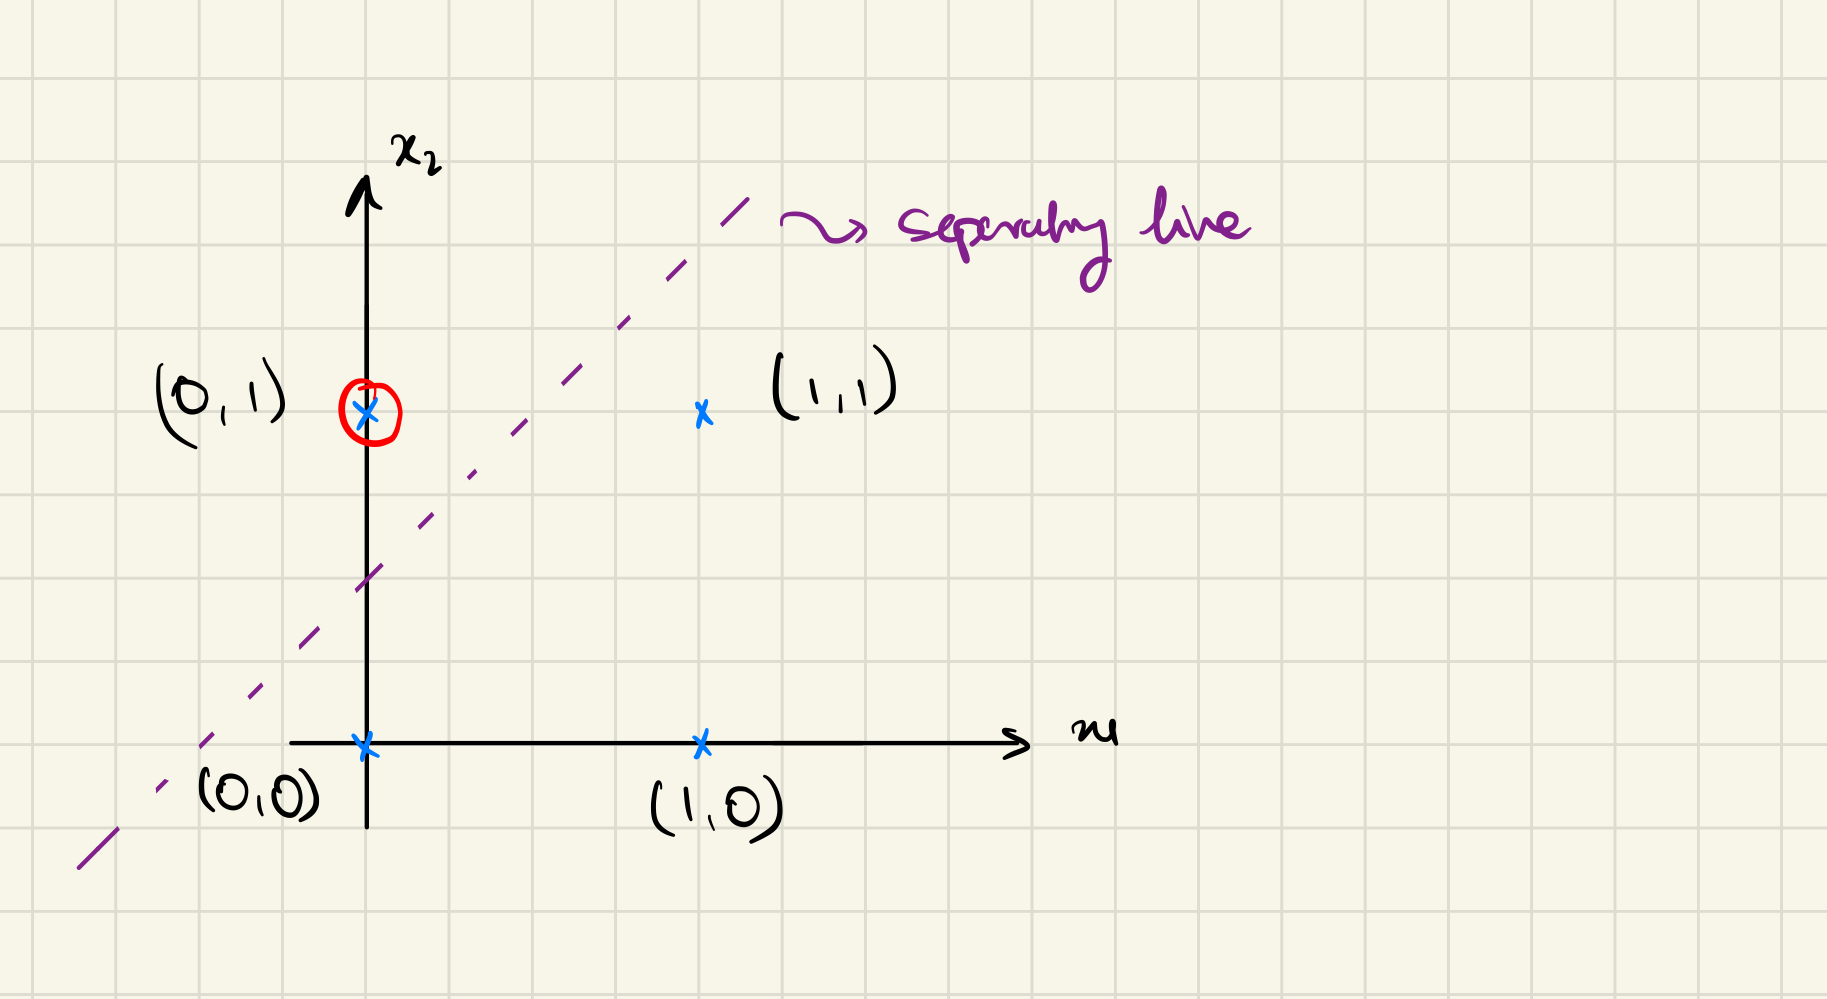 x₂
separating line
(0,1)
(1,1)
x₁
(0,0)
(1,0)